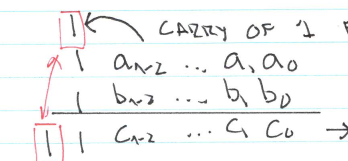 1 CARRY OF 1
1 aₙ₋₂ ... a₁ a₀
1 bₙ₋₂ ... b₁ b₀
1 1 cₙ₋₂ ... c₁ c₀ →